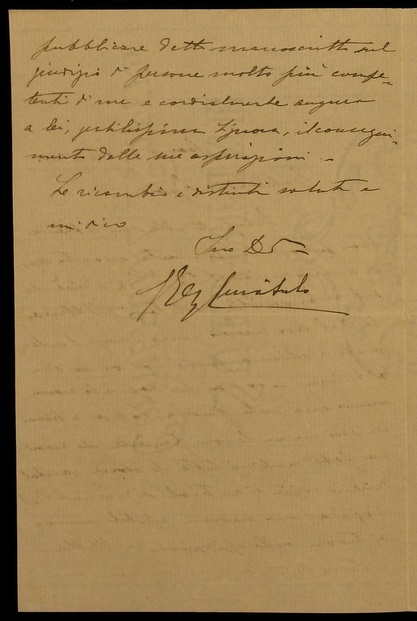 pubblicare detto manoscritto sul
giudizio di persone molto più compe-
tenti di me e cordialmente auguro
a lei, gentilissima Signora, il consegui-
mento delle sue aspirazioni -
Le ricambio i distinti saluti e
mi dico
Suo